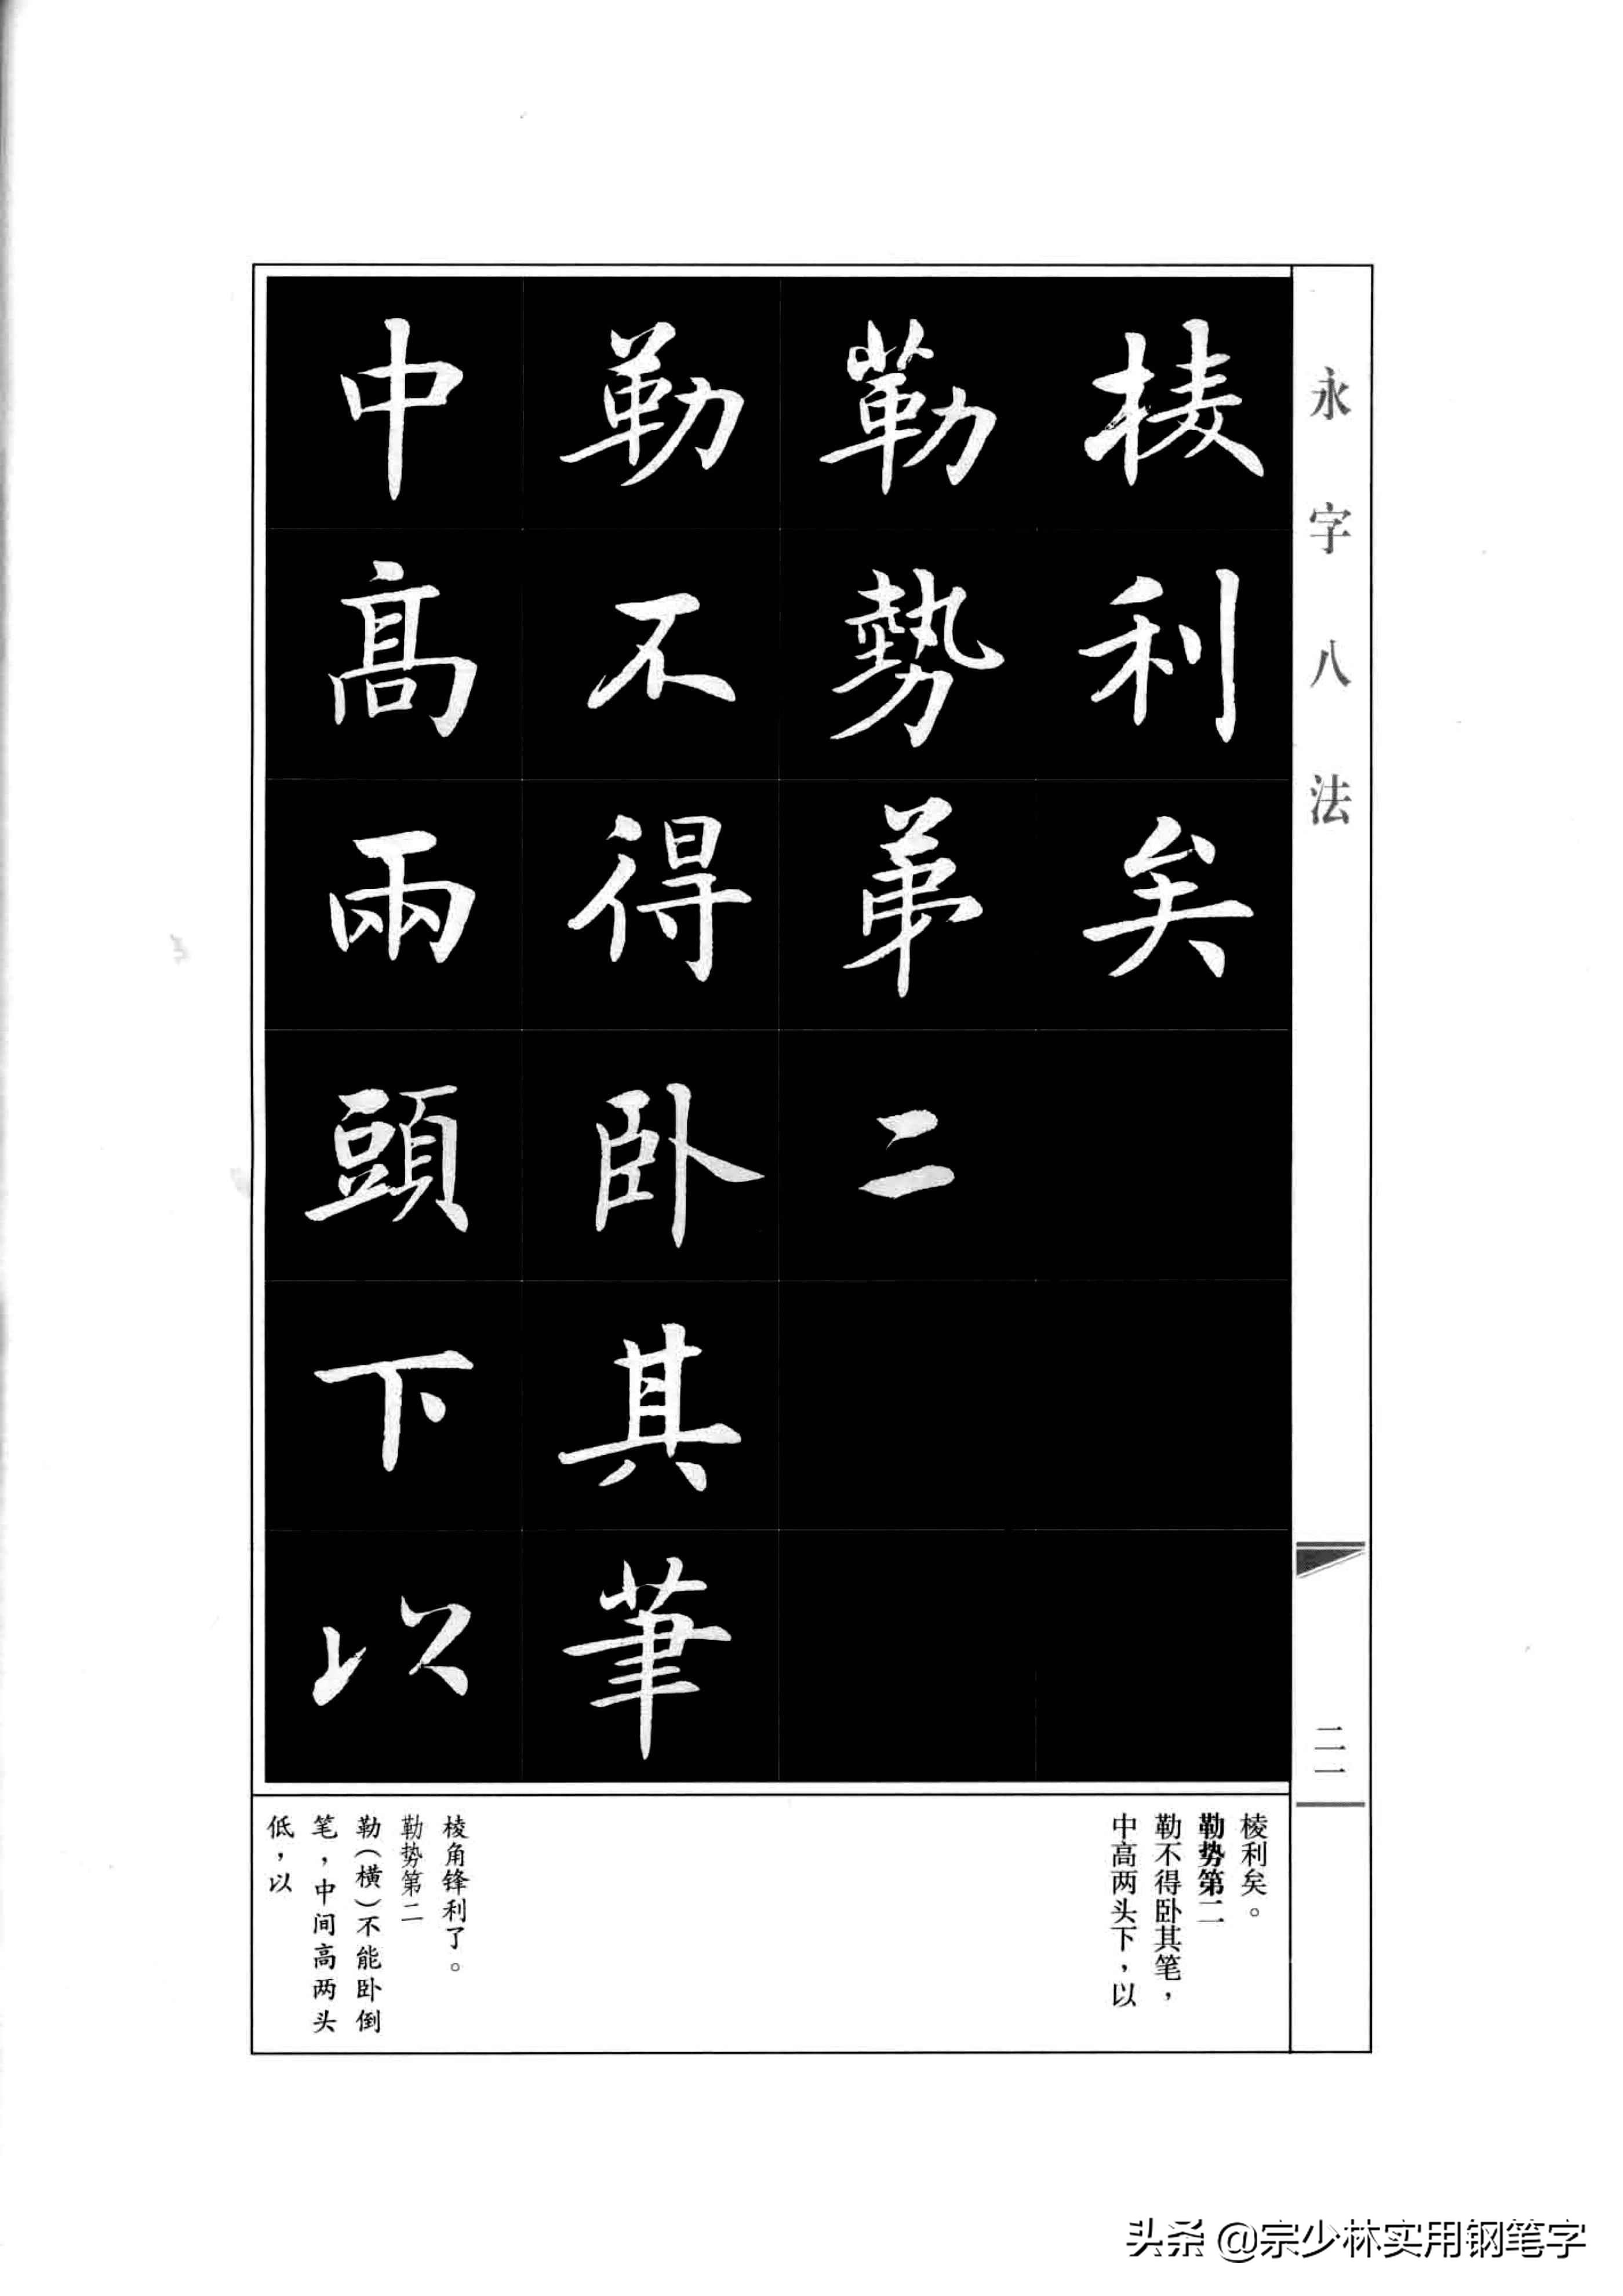 永字八法
棱利矣
勒勢第二
勒不得卧其筆
中高兩頭下以
二一
棱利矣。
勒势第二
勒不得卧其笔，
中高两头下，以
棱角锋利了。
勒势第二
勒（横）不能卧倒
笔，中间高两头
低，以
头条 @宗少林实用钢笔字